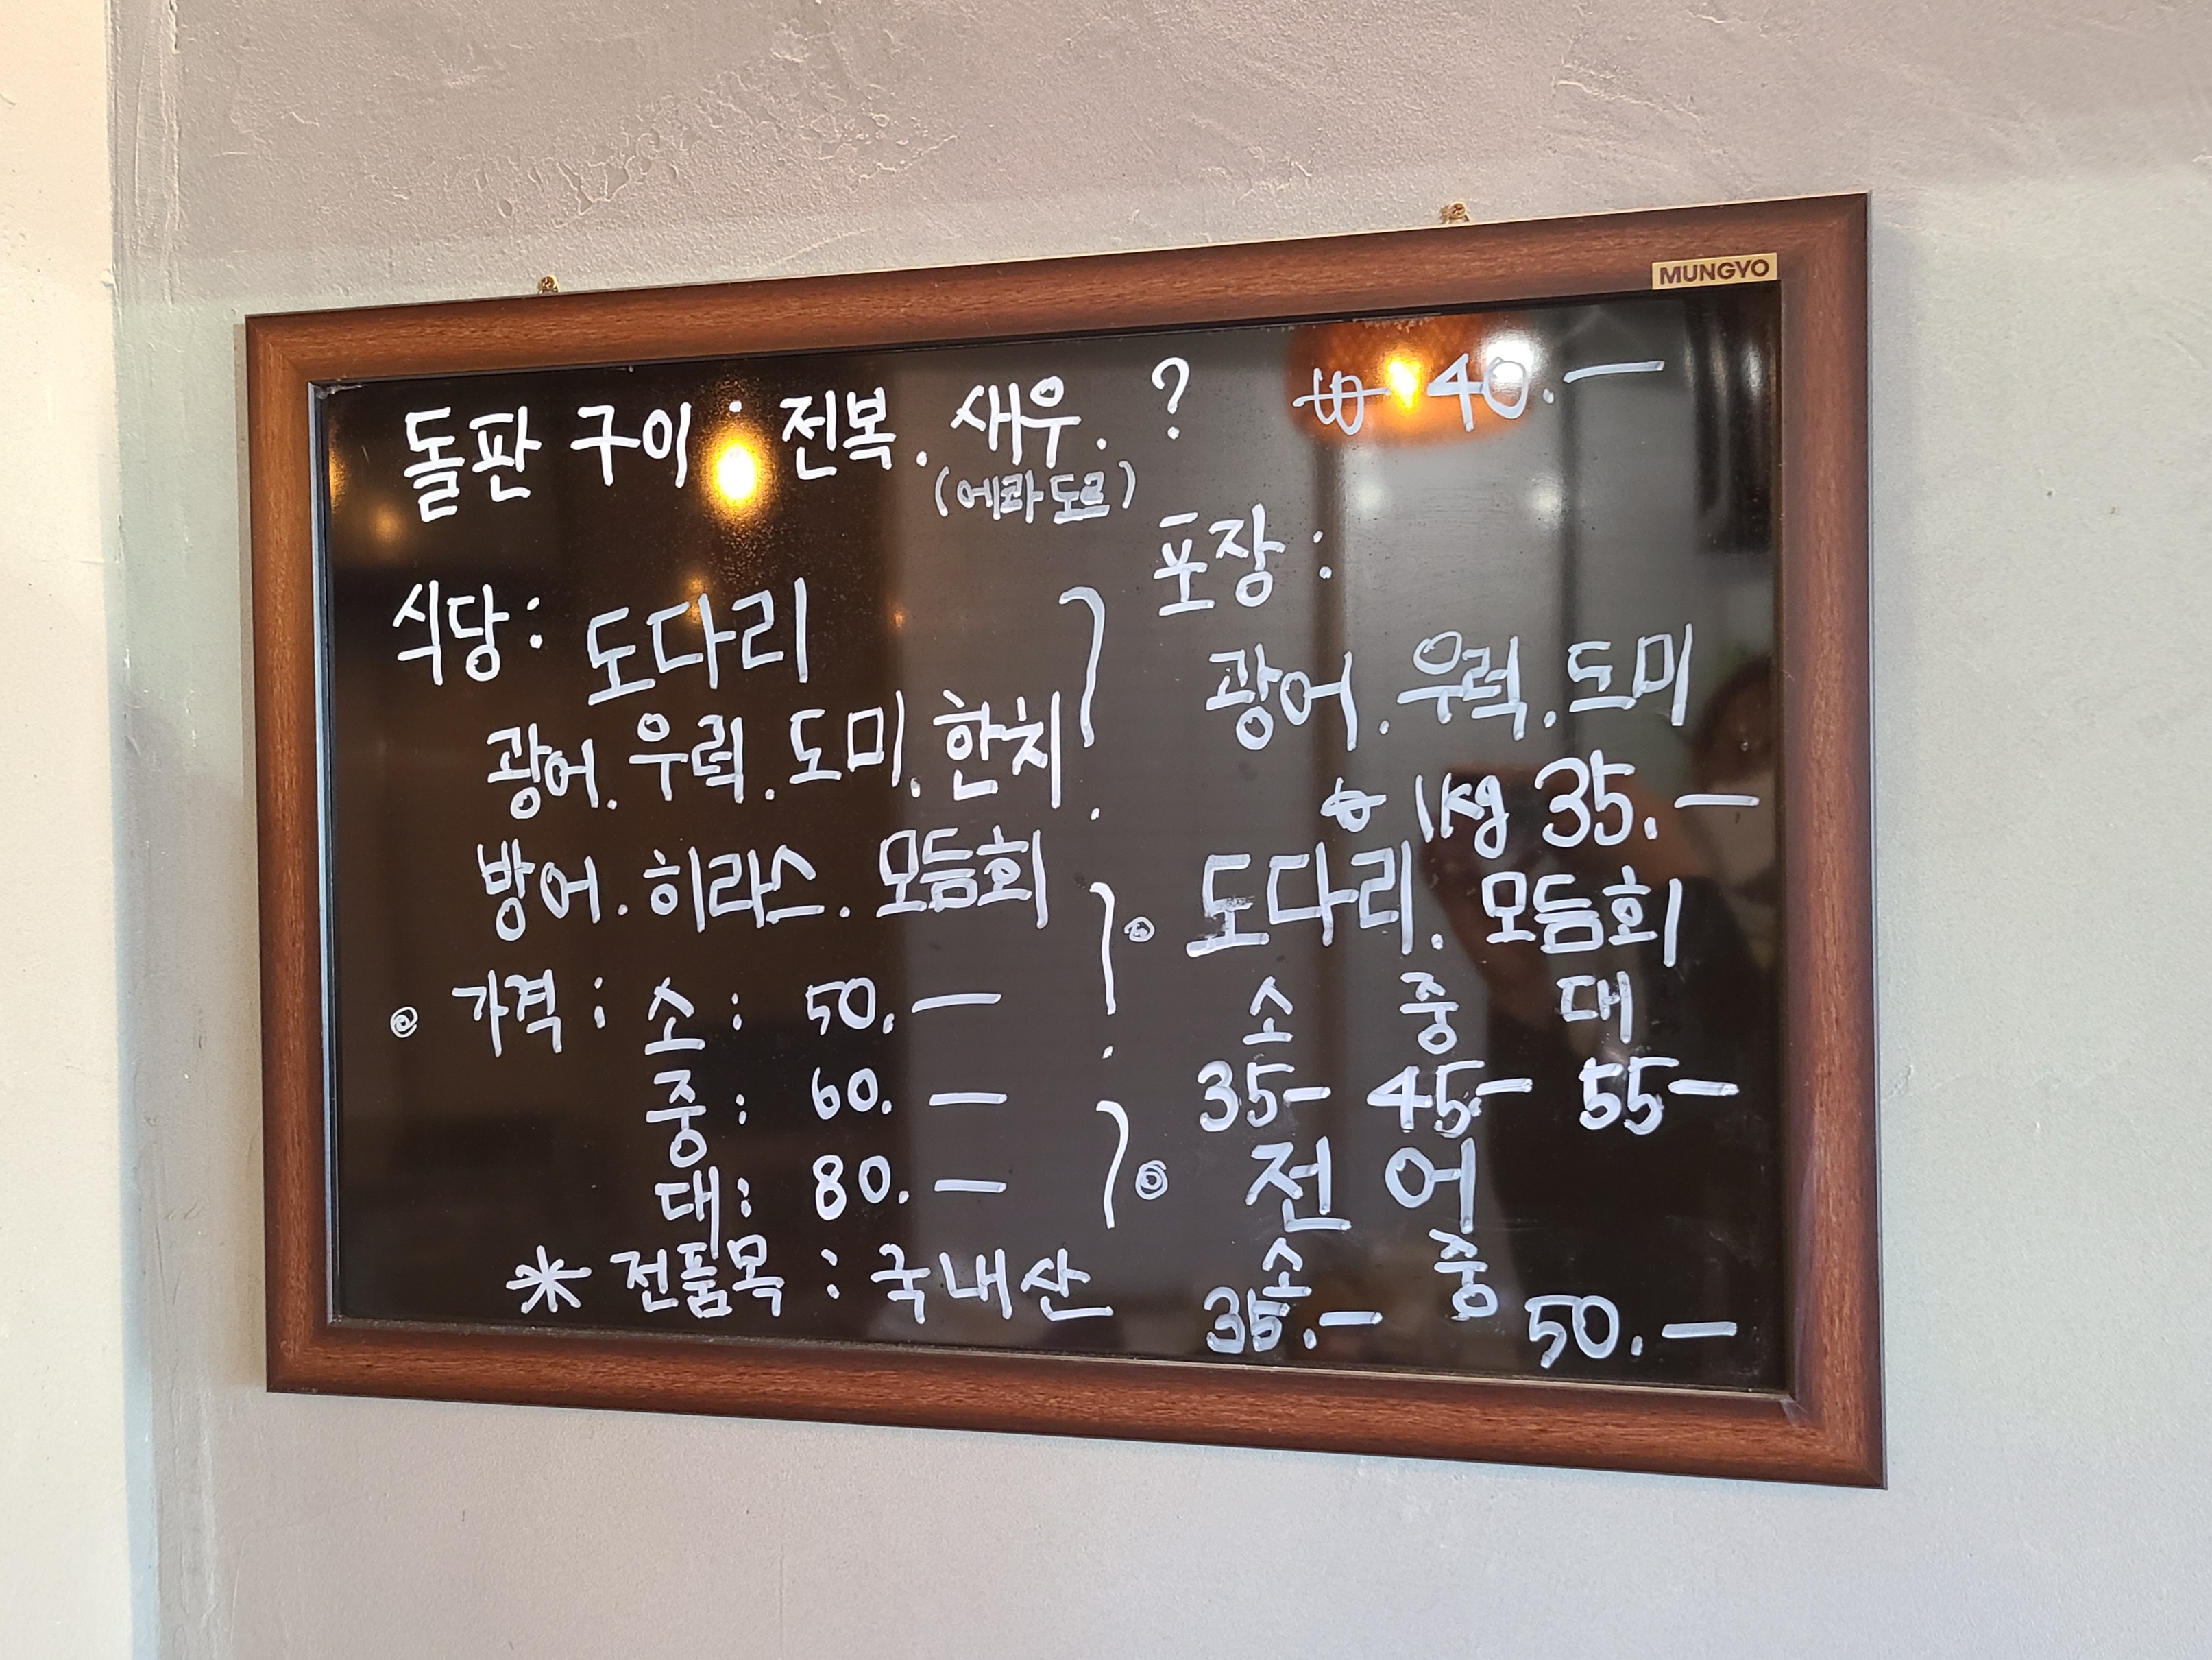 MUNGYO
돌판 구이 : 전복. 새우. ? ₩ 40.—
(에콰도르)
식당: 도다리
광어. 우럭. 도미. 한치
방어. 히라스. 모듬회
◎ 가격 : 소 : 50.—
중 : 60.—
대 : 80.—
* 전품목 : 국내산
포장 :
광어. 우럭. 도미
1kg 35.—
◎ 도다리. 모듬회
소 중 대
35— 45— 55—
◎ 전어
소 중
35.— 50.—